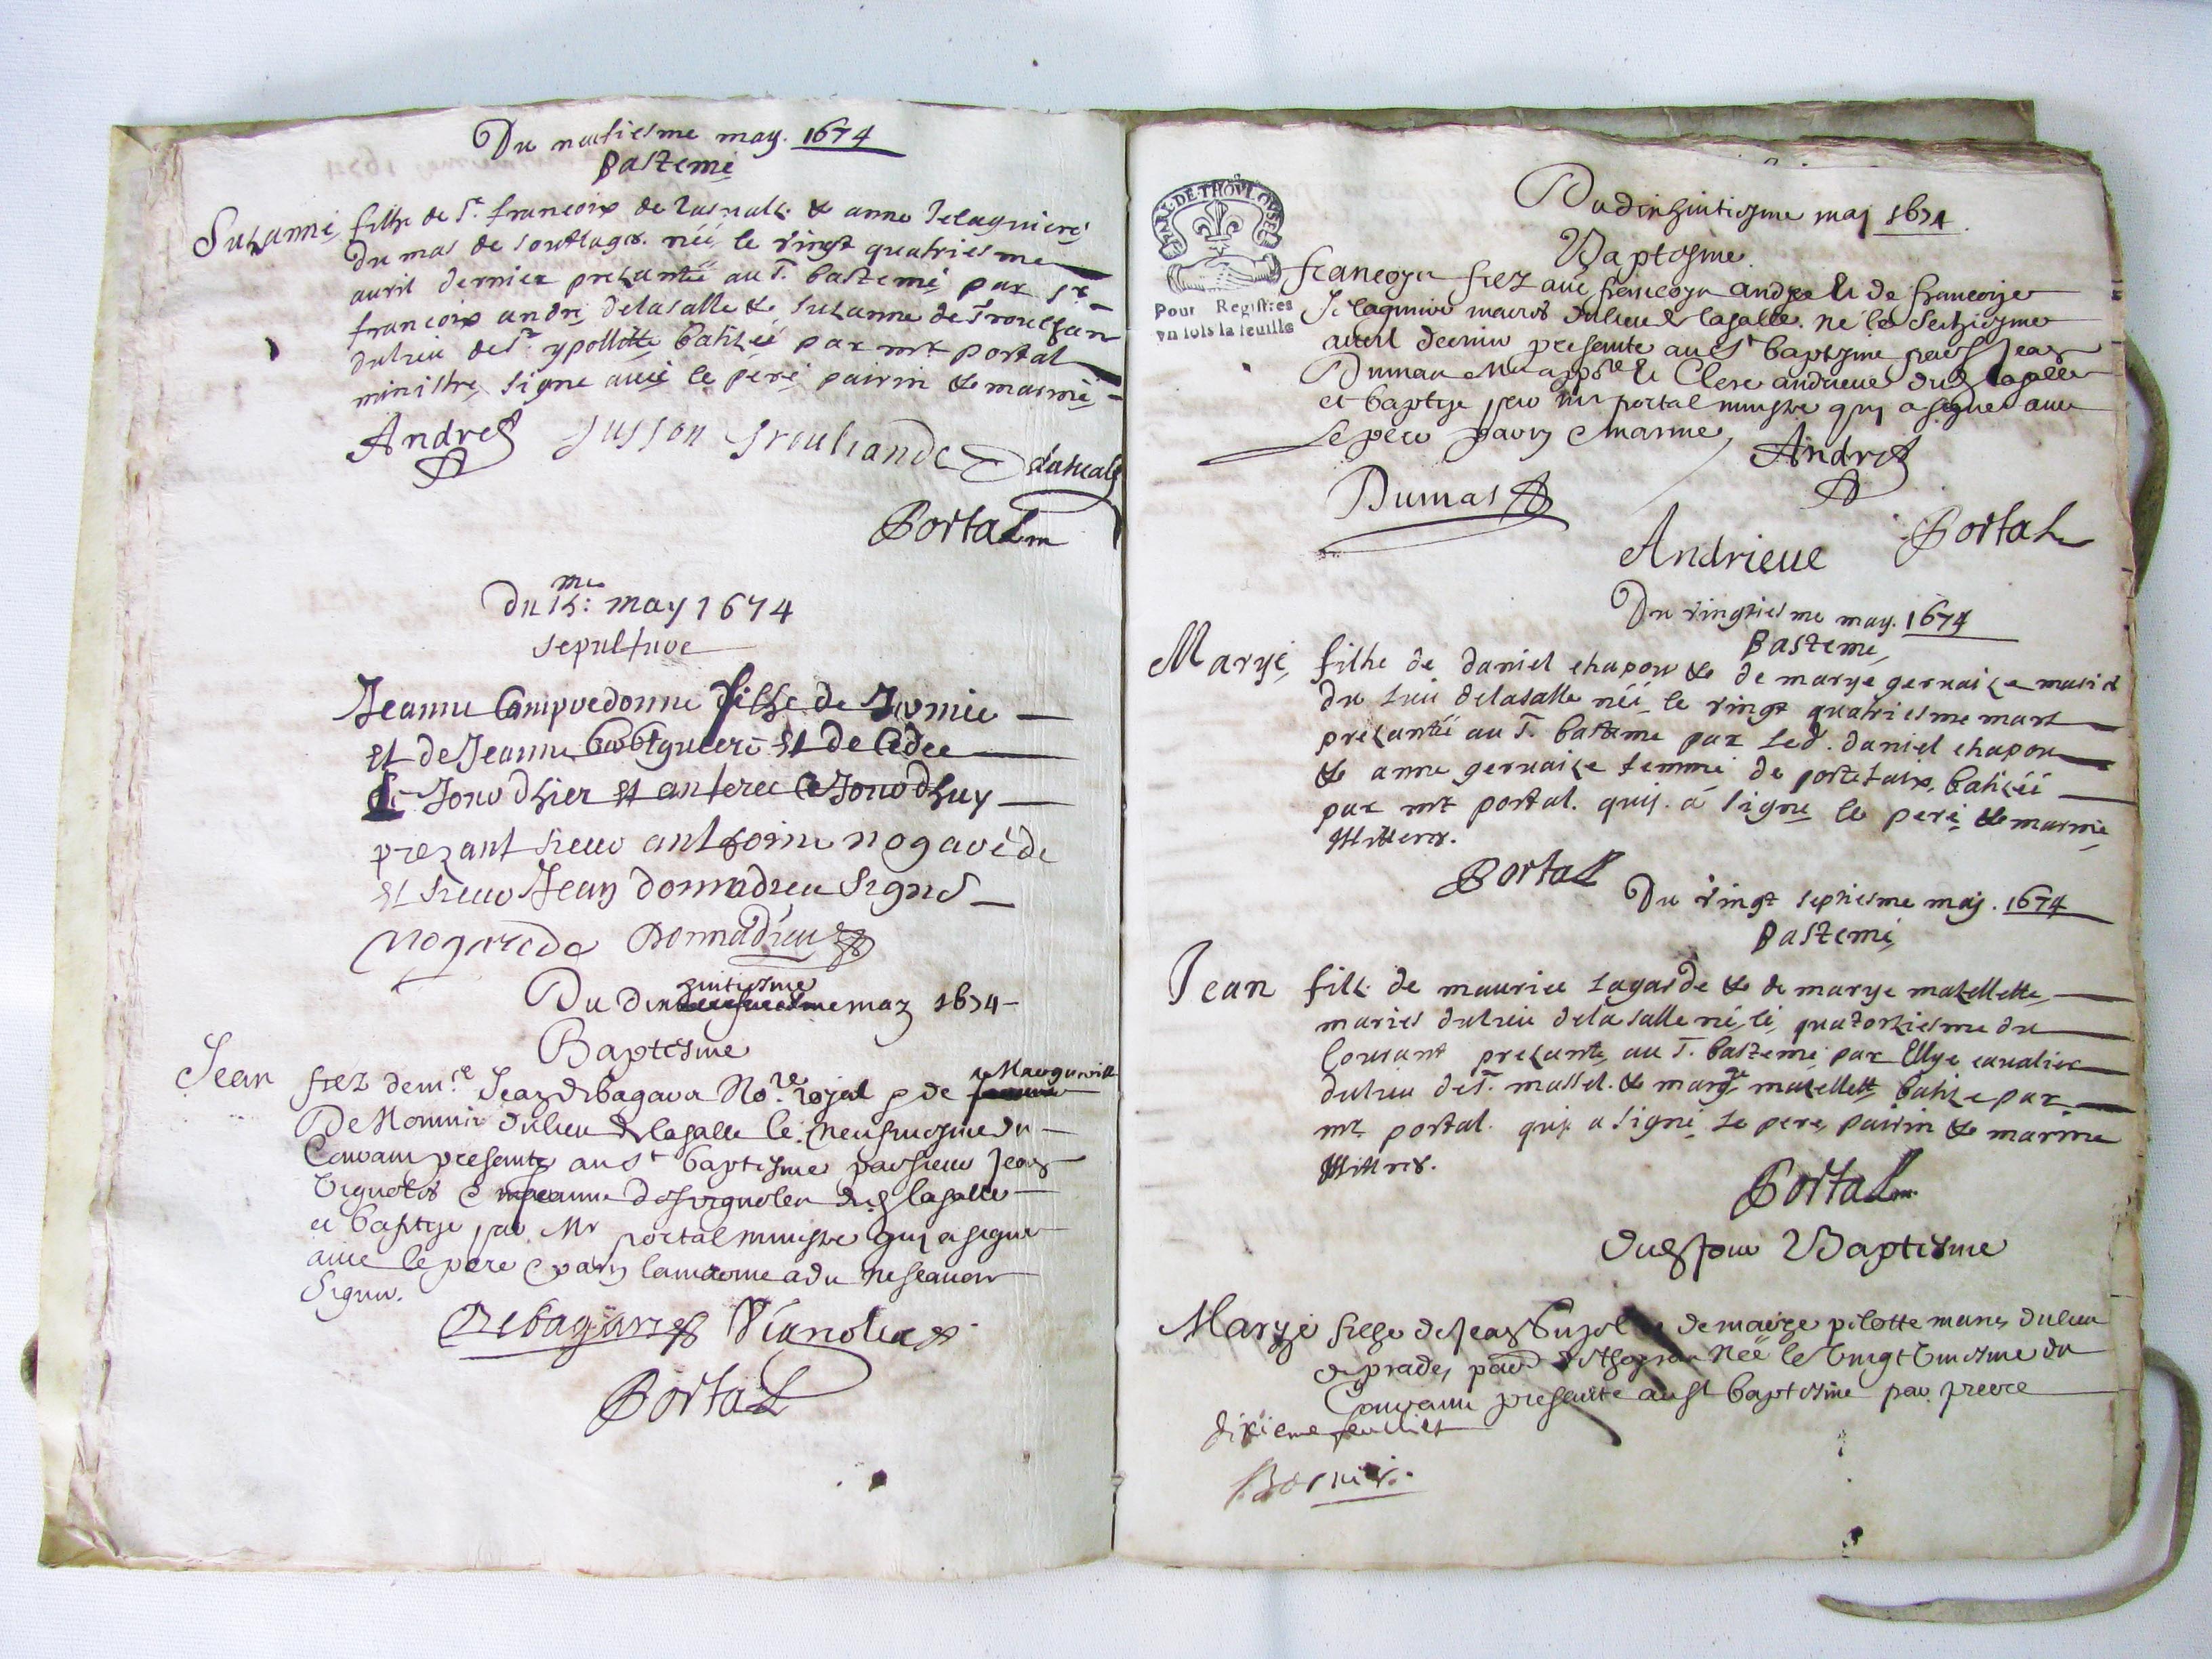 Du nufiesme may. 1674
Bastemé
Suzanne filhe de Sr. francoix de & anne
du mas de née le vingt quatriesme
auril dernier prezantée au St. bastemé par Sr.
francoix andré delasalle & Suzanne de
du lieu de St. ypollitte batizée par mr portal
ministre, signé auec le peré pairin & marrine
André Susson
Portal m
Du 15me: may 1674
sepulture
Jeanne Campredonne filhe de
et de Jeanne et decedee
le Jour dhier et anteree ce Jour dhuy
prezant sieur anthoine nogarède
et sieur Jean donnadieu signés
Nogarede Donnadieu
Du dixhuitiesme may 1674
Baptesme
Jean filz de mre. Jean Rebagaire Nore. royal & de Marguerite
De Mounié du lieu de lasalle le neufuiesme du
Couram presenté au St baptesme par sieur Jean
Vignoles & Jeanne de vignoles dud lasalle
et baptize par Mr portal ministre quy a signé
auec le pere & parin la marrine a du ne scauoir
Signer.
Vignoles
Portal
PART. DE THOVLOVSE
Pour Registres
vn sols la feuille
Du dixhuitiesme may 1674
Baptesme
francoys filz au francoys andré & de francoize
maries du lieu de lasalle. né le Seitziesme
auril dernier presenté au St baptesme par Sr Jean
Dumas & Clere andrieue dud lasalle
et baptize par mr portal ministre quy a signé auec
Le pere parin & marrine
André
Dumas
Andrieue Portal
Du vingtiesme may. 1674
Bastemé
Maryé filhe de daniel chapon & de marye geruaize mariés
du lieu delasalle née le vingt quatriesme mars
prezantée au St. batême par led. daniel chapon
& anne geruaize femme de portefaix, batizée
par mr portal. quy. a signé le peré & marrine
illitterés.
Portal
Du vingt septiesme may. 1674
Bastemé
Jean filz de maurice Lagarde & de marye mazellette
mariés du lieu delasalle né le quatorziesme du
Courant prezanté au St. bastemé par Ellye caualier
du lieu de St. massel. & marye mazellette batizé par
mr portal. quy a signé Le pere, pairin & marrine
illitrés.
Portal m
dud Jour Baptesme
Maryé filhe de Jean Pujol & de marye pilotte mariés du lieu
de prades, née le Vingt uniesme du
Courant presentée au St baptesme par pierre
dixieme feulliet